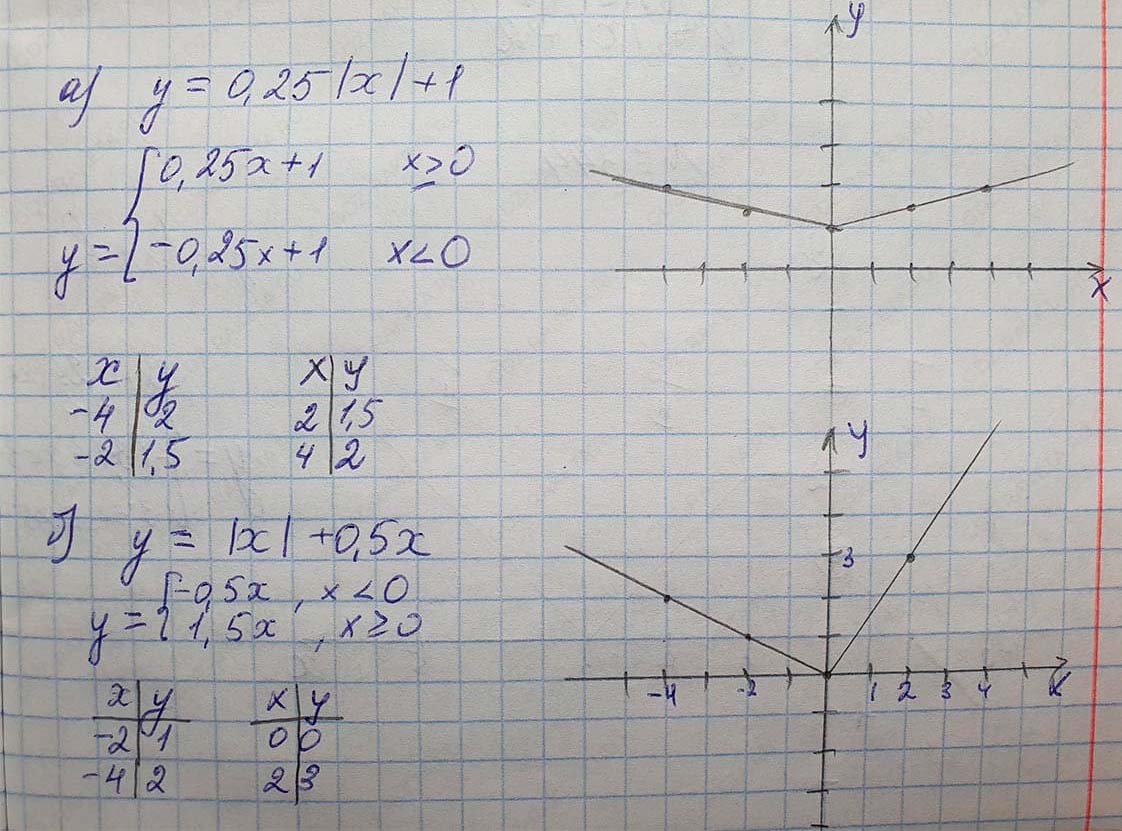 а) y = 0,25|x|+1
y = { 0,25x+1 x≥0
-0,25x+1 x<0
x y x y
-4 2 2 1,5
-2 1,5 4 2
б) y = |x|+0,5x
y = { -0,5x, x<0
1,5x, x≥0
x y x y
-2 1 0 0
-4 2 2 3
y
x
y
3
-4 -2 1 2 3 4 x